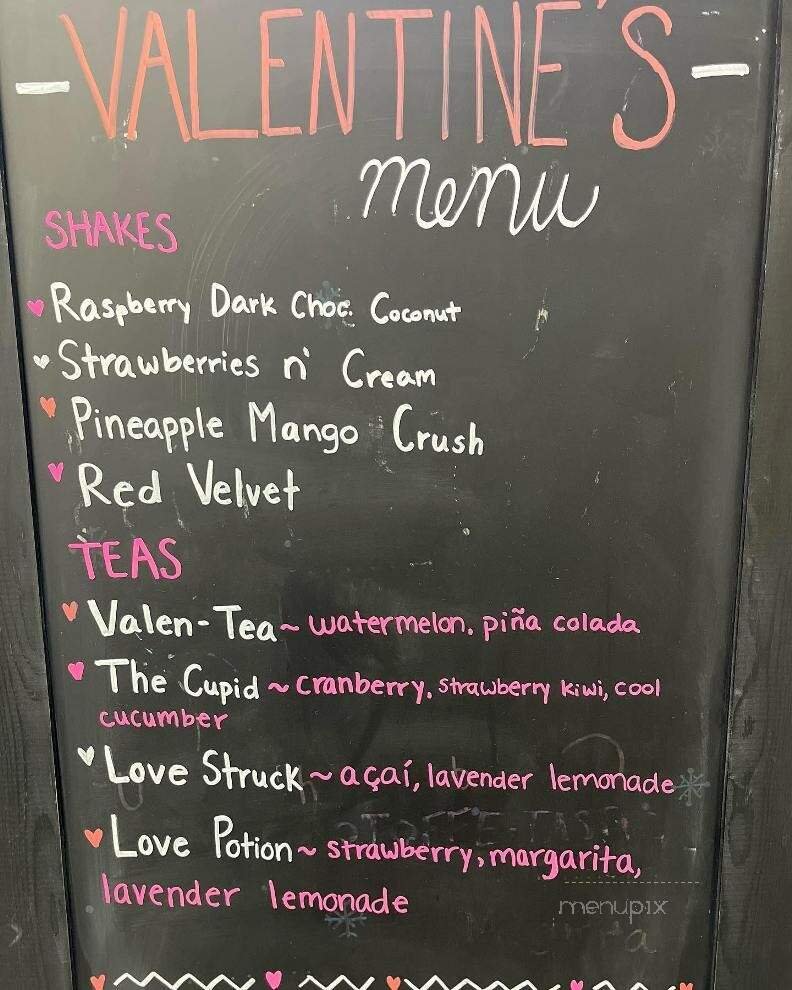 - VALENTINE'S -
menu
SHAKES
Raspberry Dark Choc. Coconut
Strawberries n' Cream
Pineapple Mango Crush
Red Velvet
TEAS
Valen-Tea ~ watermelon, piña colada
The Cupid ~ cranberry, strawberry kiwi, cool
cucumber
Love Struck ~ açaí, lavender lemonade
Love Potion ~ strawberry, margarita,
lavender lemonade
menupix